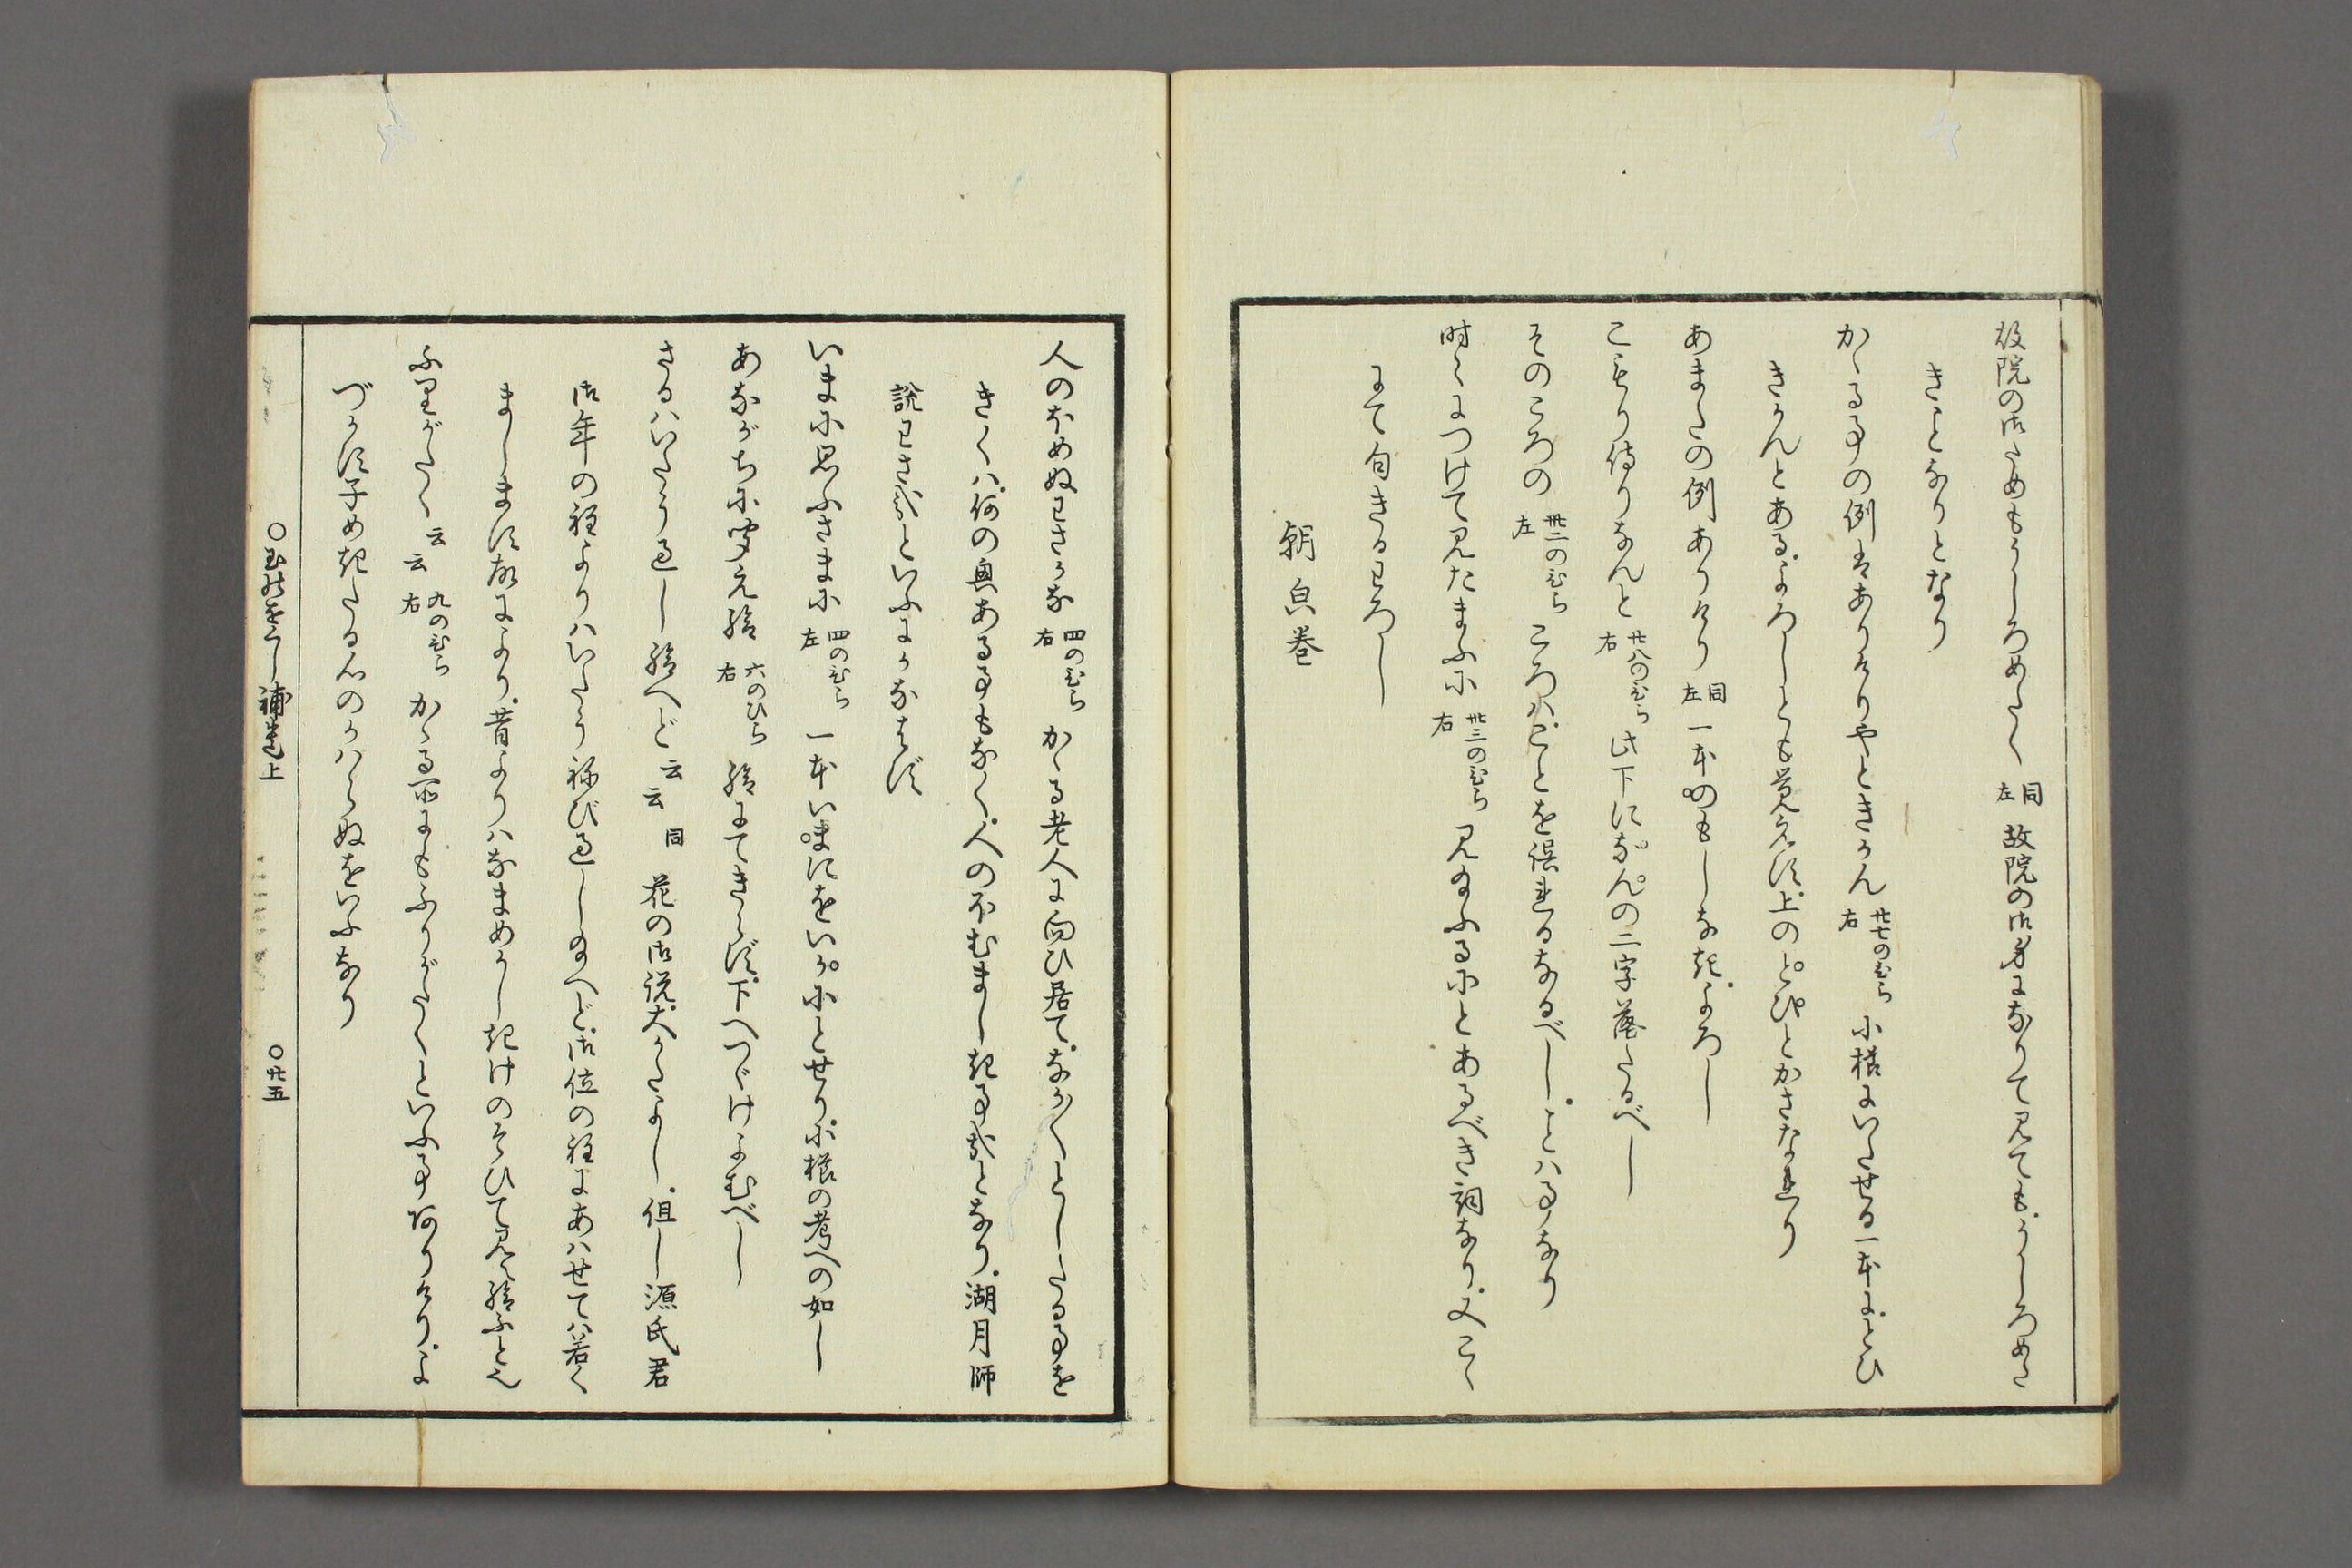 故院の御ためもうしろめたく 同左 故院の御身になりて見ても。うしろめた
きことなりとなり
かゝる事の例はありけりやときかん 廿七のひら右 小櫛にいだせる一本に。とひ
きかんとある。よろしとも覚えず。上のとぴとかさなれり
あまたの例ありけり 同左 一本のもじなき。よろし
こもり侍りなんと 廿八のひら右 此下になんの二字落たるべし
そのころの 卅二のひら左 ころハ。ことを誤れるなるべし。ことハ事なり
時〻につけて見たまふに 卅三のひら右 見給ふるにとあるべき詞なり。又こゝ
にて句きるわろし
朝㒵巻
人のほめぬわざかな 四のひら右 かゝる老人に向ひ居て。なが〳〵としたる事を
きくハ。何の興ある事もなく。人のこのむまじき事ぞとなり。湖月師
説わざぞといふにかなはず
いまに思ふさまに 四のひら左 一本いまにをいかにとせり。小櫛の考への如し
あながちに聞え給 六のひら右 給にてきらず。下へつゞけよむべし
さるハいたう過し給へど云云 同 花の御説。大かたよし。但し源氏君
御年の程よりハいたうねび過し給へど。御位の程にあハせてハ若く
ましますなによりり。昔よりハなまめかしきけのそひて見え給ふとや
ふりがたく云云 九のひら右 かゝる所にもふりがたくといふ事ありけり。よ
づかずねめきたる心のかハらぬをいふなり
○玉のをぐし補遺上 ○廿五